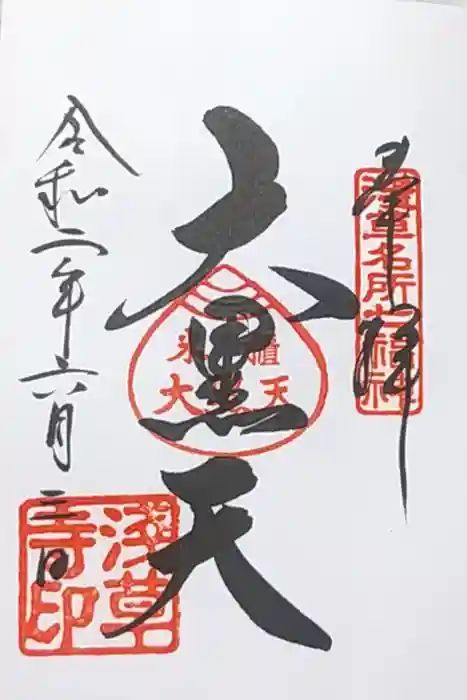 奉拝
浅草名所七福神
大黒天
米櫃
大黒天
令和二年六月三日
浅草寺印